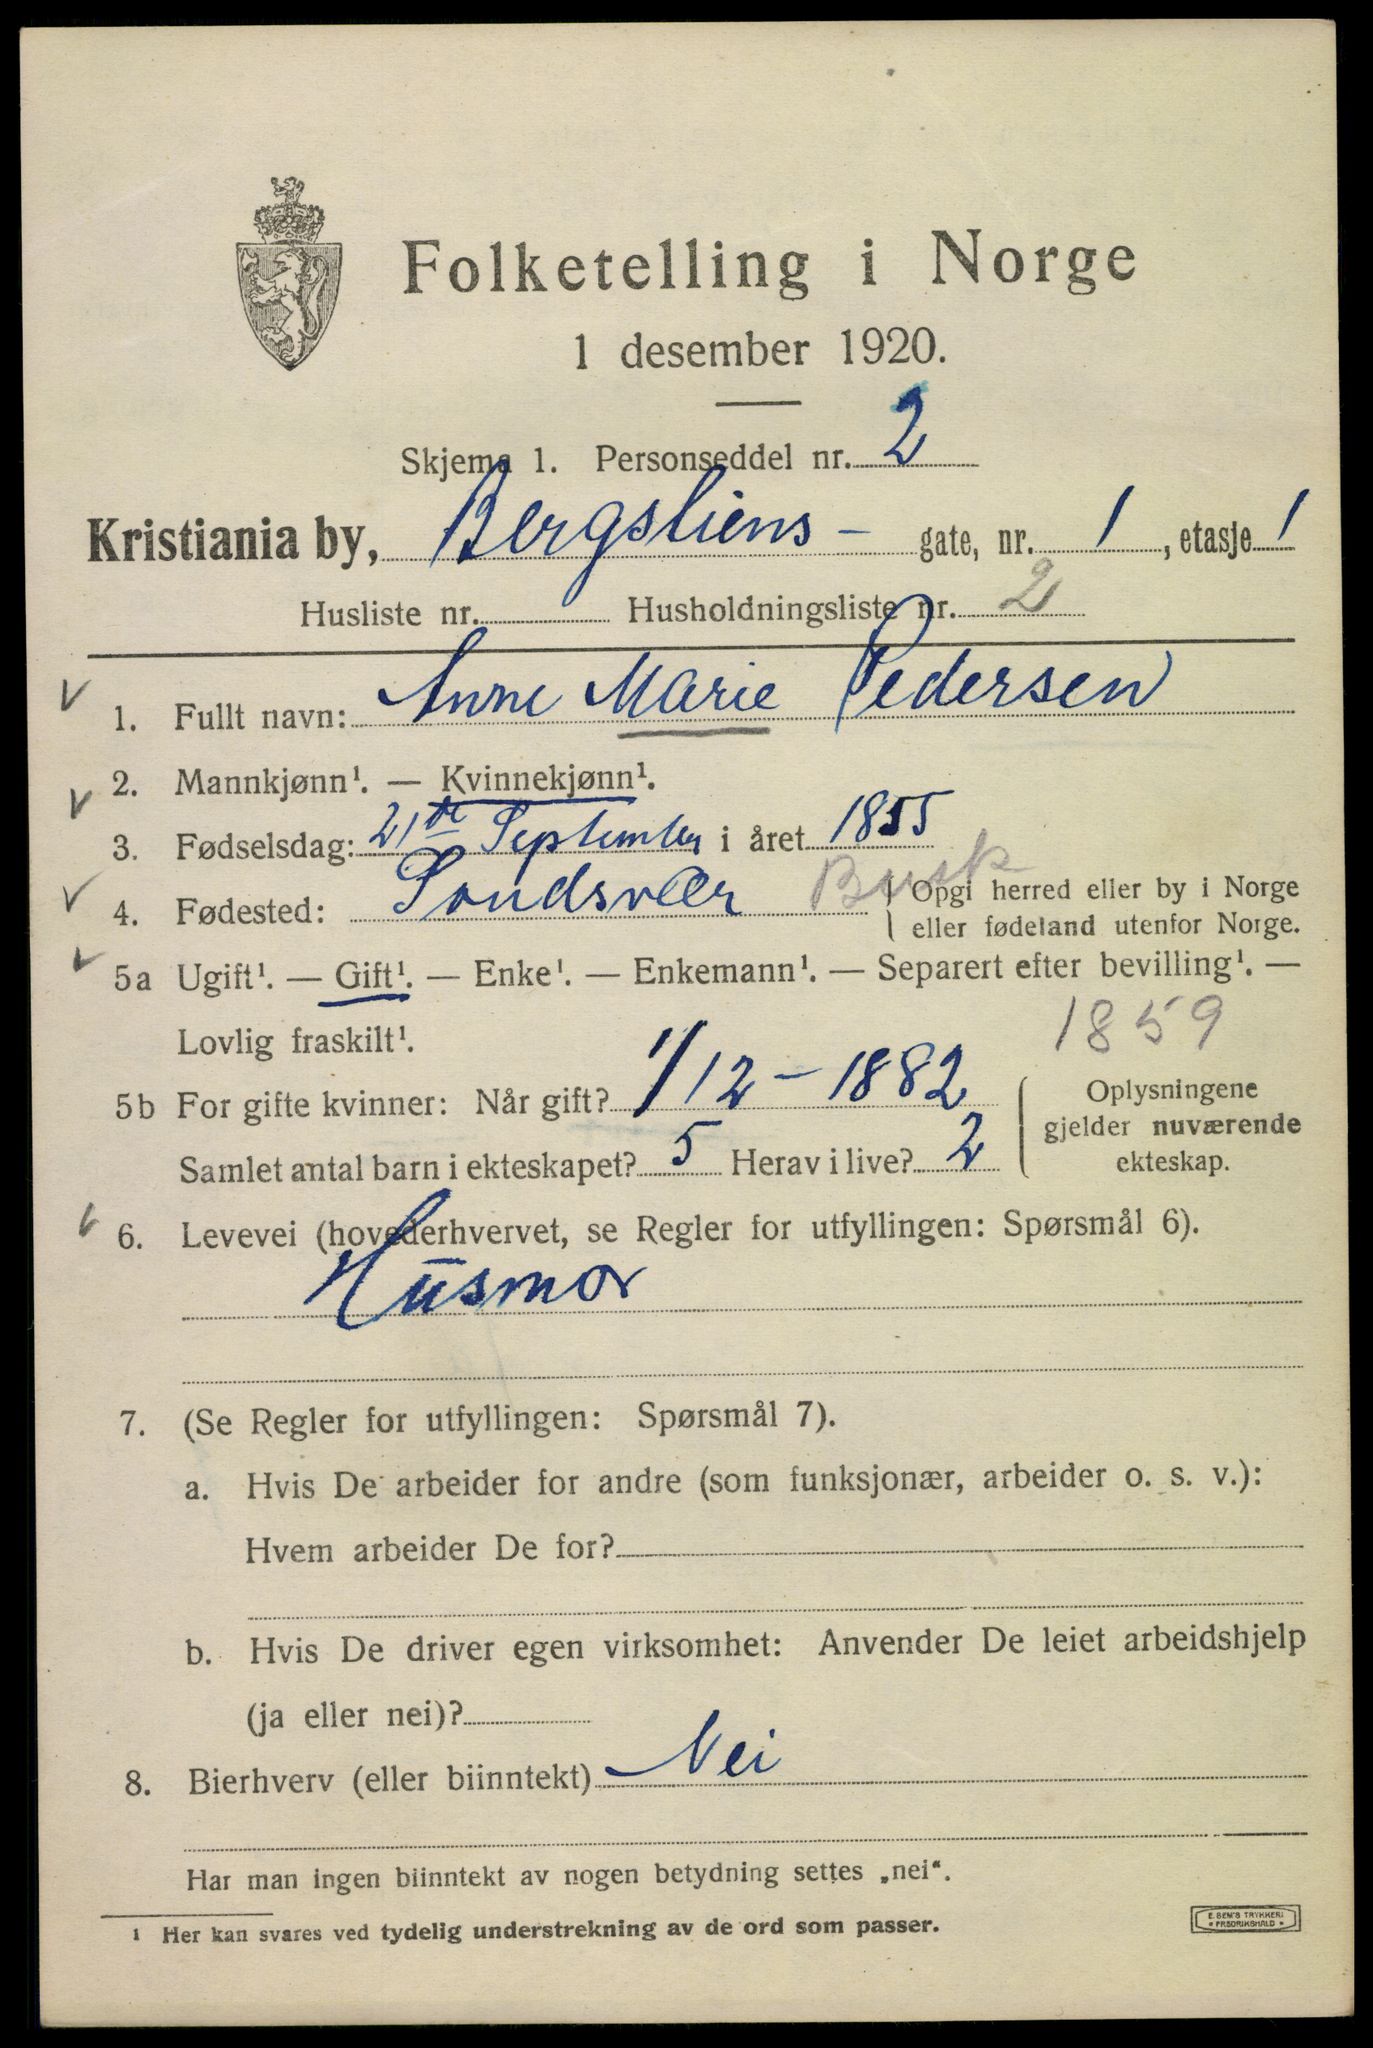 Folketelling i Norge
1 desember 1920.
Skjema 1. Personseddel nr. 2
Kristiania by, Bergsliens - gate, nr. 1, etasje 1
Husliste nr. Husholdningsliste nr. 2
1. Fullt navn: Anne Marie Pedersen
2. Mannkjønn¹. — Kvinnekjønn¹.
3. Fødselsdag: 21de September i året 1855
4. Fødested: Sandsvær Busk { Opgi herred eller by i Norge
eller fødeland utenfor Norge.
5a Ugift¹. — Gift¹. — Enke¹. — Enkemann¹. — Separert efter bevilling¹. —
Lovlig fraskilt¹. 1859
5b For gifte kvinner: Når gift? 1/12 - 1882
Samlet antal barn i ekteskapet? 5 Herav i live? 2
Oplysningene
gjelder nuværende
ekteskap.
6. Levevei (hovederhvervet, se Regler for utfyllingen: Spørsmål 6).
Husmor
7. (Se Regler for utfyllingen: Spørsmål 7).
a. Hvis De arbeider for andre (som funksjonær, arbeider o. s. v.):
Hvem arbeider De for?
b. Hvis De driver egen virksomhet: Anvender De leiet arbeidshjelp
(ja eller nei)?
8. Bierhverv (eller biinntekt) Nei
Har man ingen biinntekt av nogen betydning settes „nei“.
¹ Her kan svares ved tydelig understrekning av de ord som passer.
E. SEM'S TRYKKERI
FREDRIKSHALD